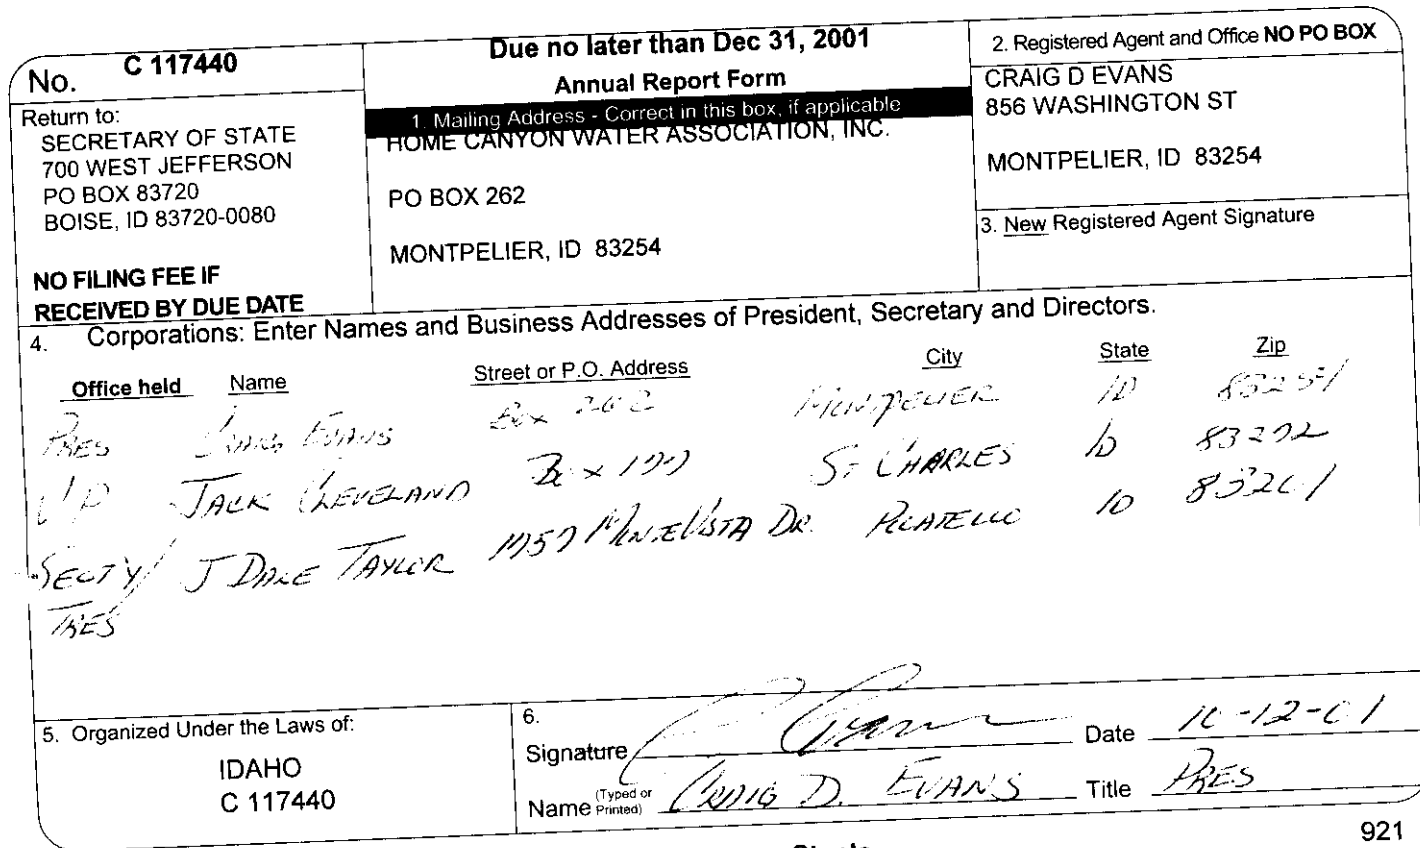 No. C 117440
Return to:
SECRETARY OF STATE
700 WEST JEFFERSON
PO BOX 83720
BOISE, ID 83720-0080
NO FILING FEE IF
RECEIVED BY DUE DATE
Due no later than Dec 31, 2001
Annual Report Form
1. Mailing Address - Correct in this box, if applicable
HOME CANYON WATER ASSOCIATION, INC.
PO BOX 262
MONTPELIER, ID 83254
2. Registered Agent and Office NO PO BOX
CRAIG D EVANS
856 WASHINGTON ST
MONTPELIER, ID 83254
3. New Registered Agent Signature
4. Corporations: Enter Names and Business Addresses of President, Secretary and Directors.
Office held Name Street or P.O. Address City State Zip
PRES CRAIG EVANS Box 262 MONTPELIER ID 83254
VP JACK CLEVELAND Box ST CHARLES ID 83272
SECTY/ J DALE TAYLOR MONTEVISTA DR. POCATELLO ID 83201
TRES
5. Organized Under the Laws of:
IDAHO
C 117440
6.
Signature Date 10-12-01
Name (Typed or Printed) CRAIG D. EVANS Title PRES
921